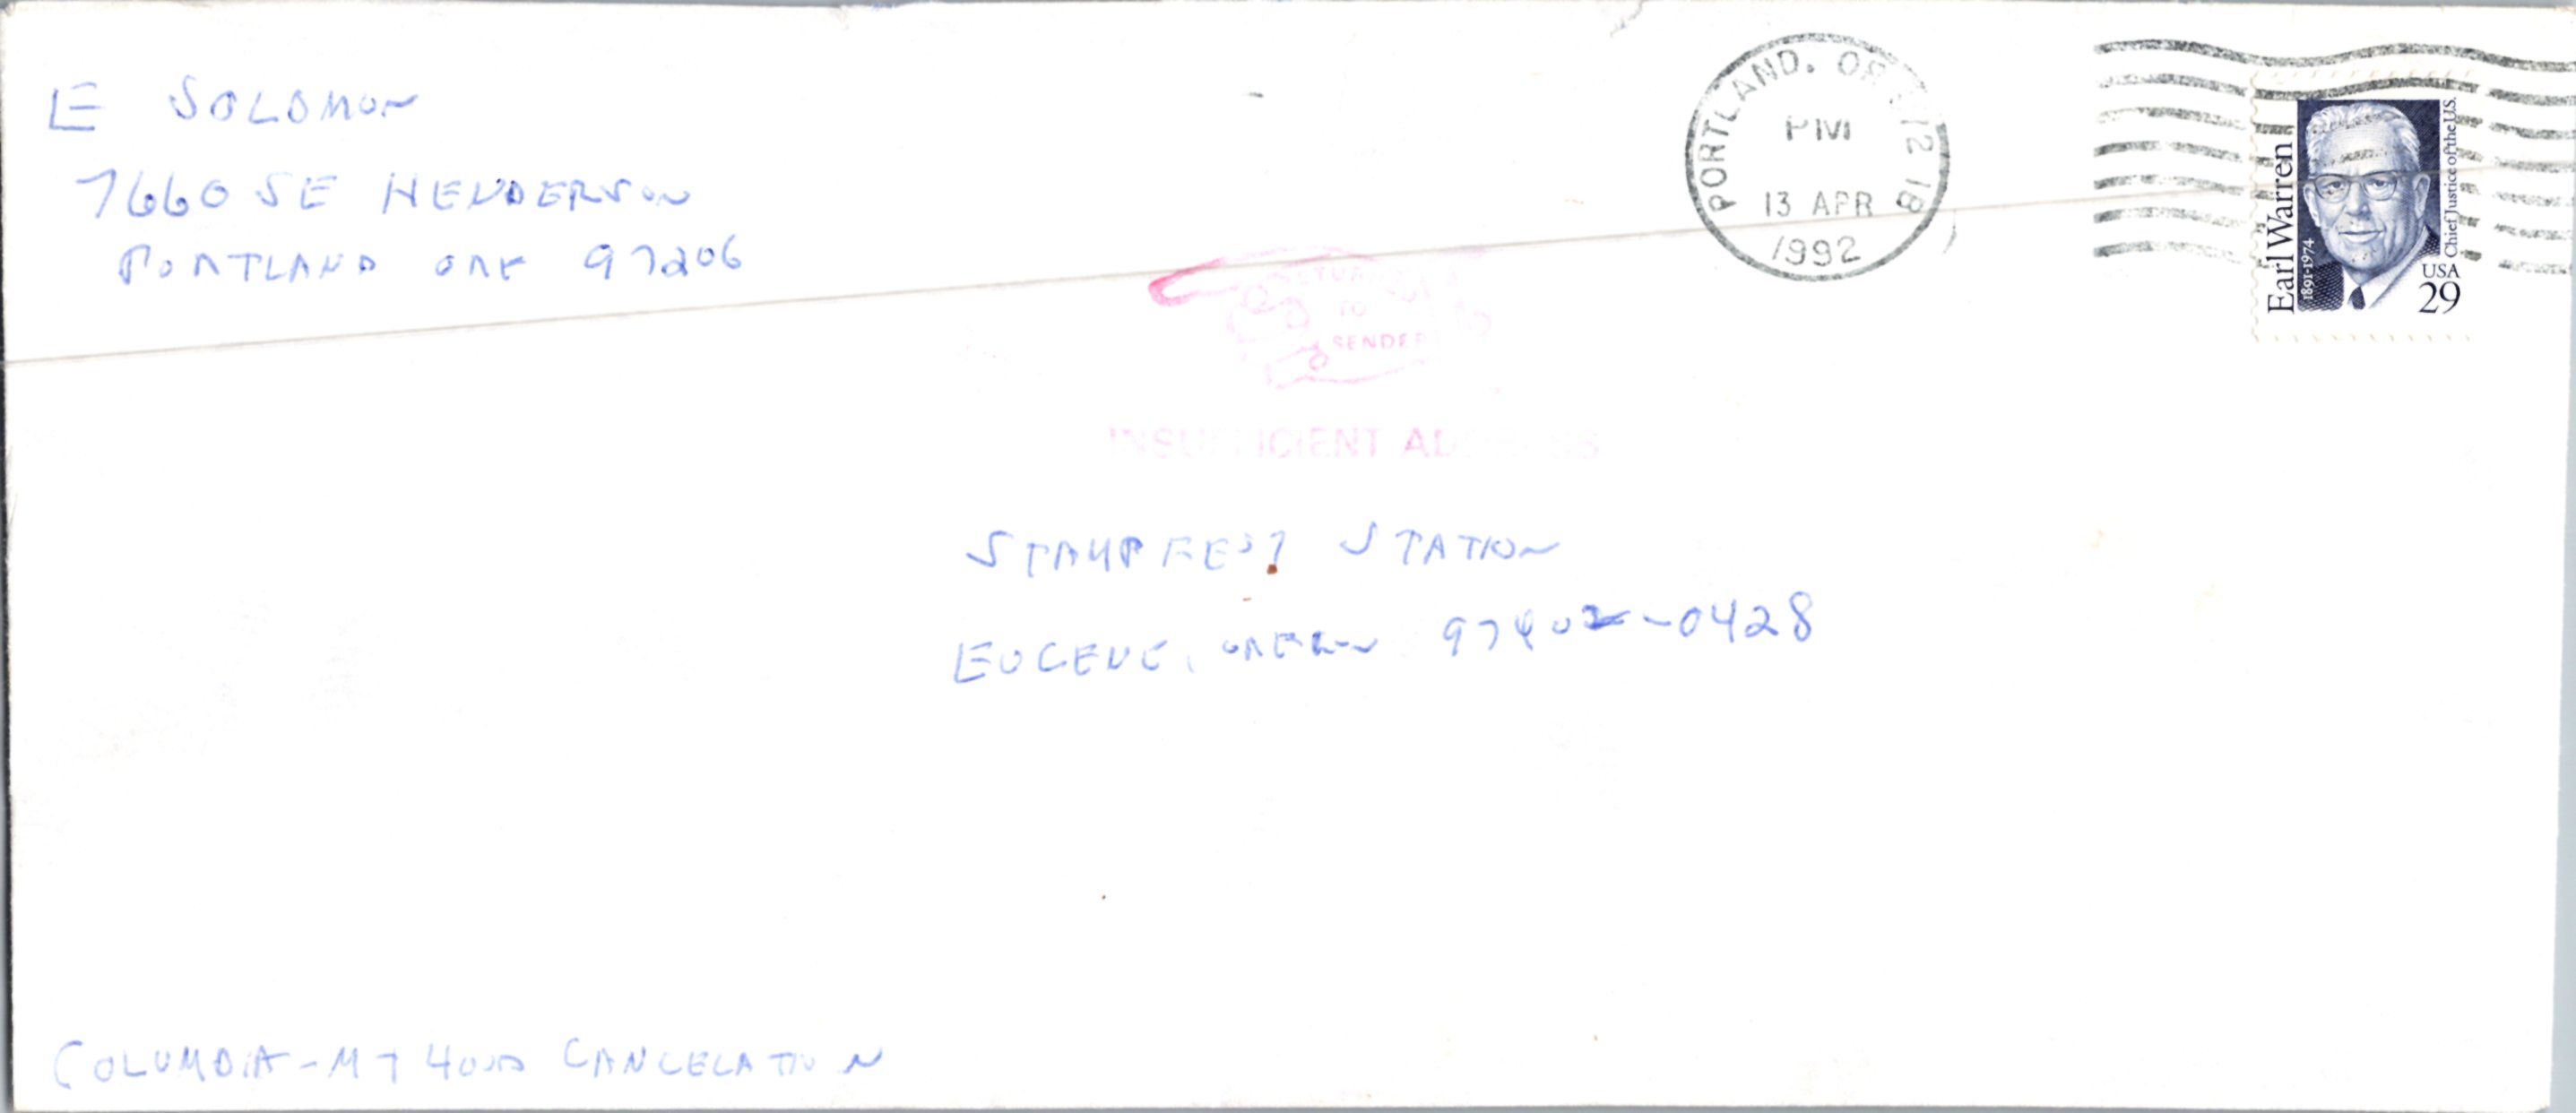 E SOLOMON
7660 SE HENDERSON
PORTLAND ORE 97206
PORTLAND, OR 12 18
PM
13 APR
1992
Earl Warren
1891-1974
Chief Justice of the U.S.
USA
29
RETURNED
TO
SENDER
INSUFFICIENT ADDRESS
STAMPFEST STATION
EUGENE, OREGON 97402-0428
COLUMBIA-MT HOOD CANCELATION